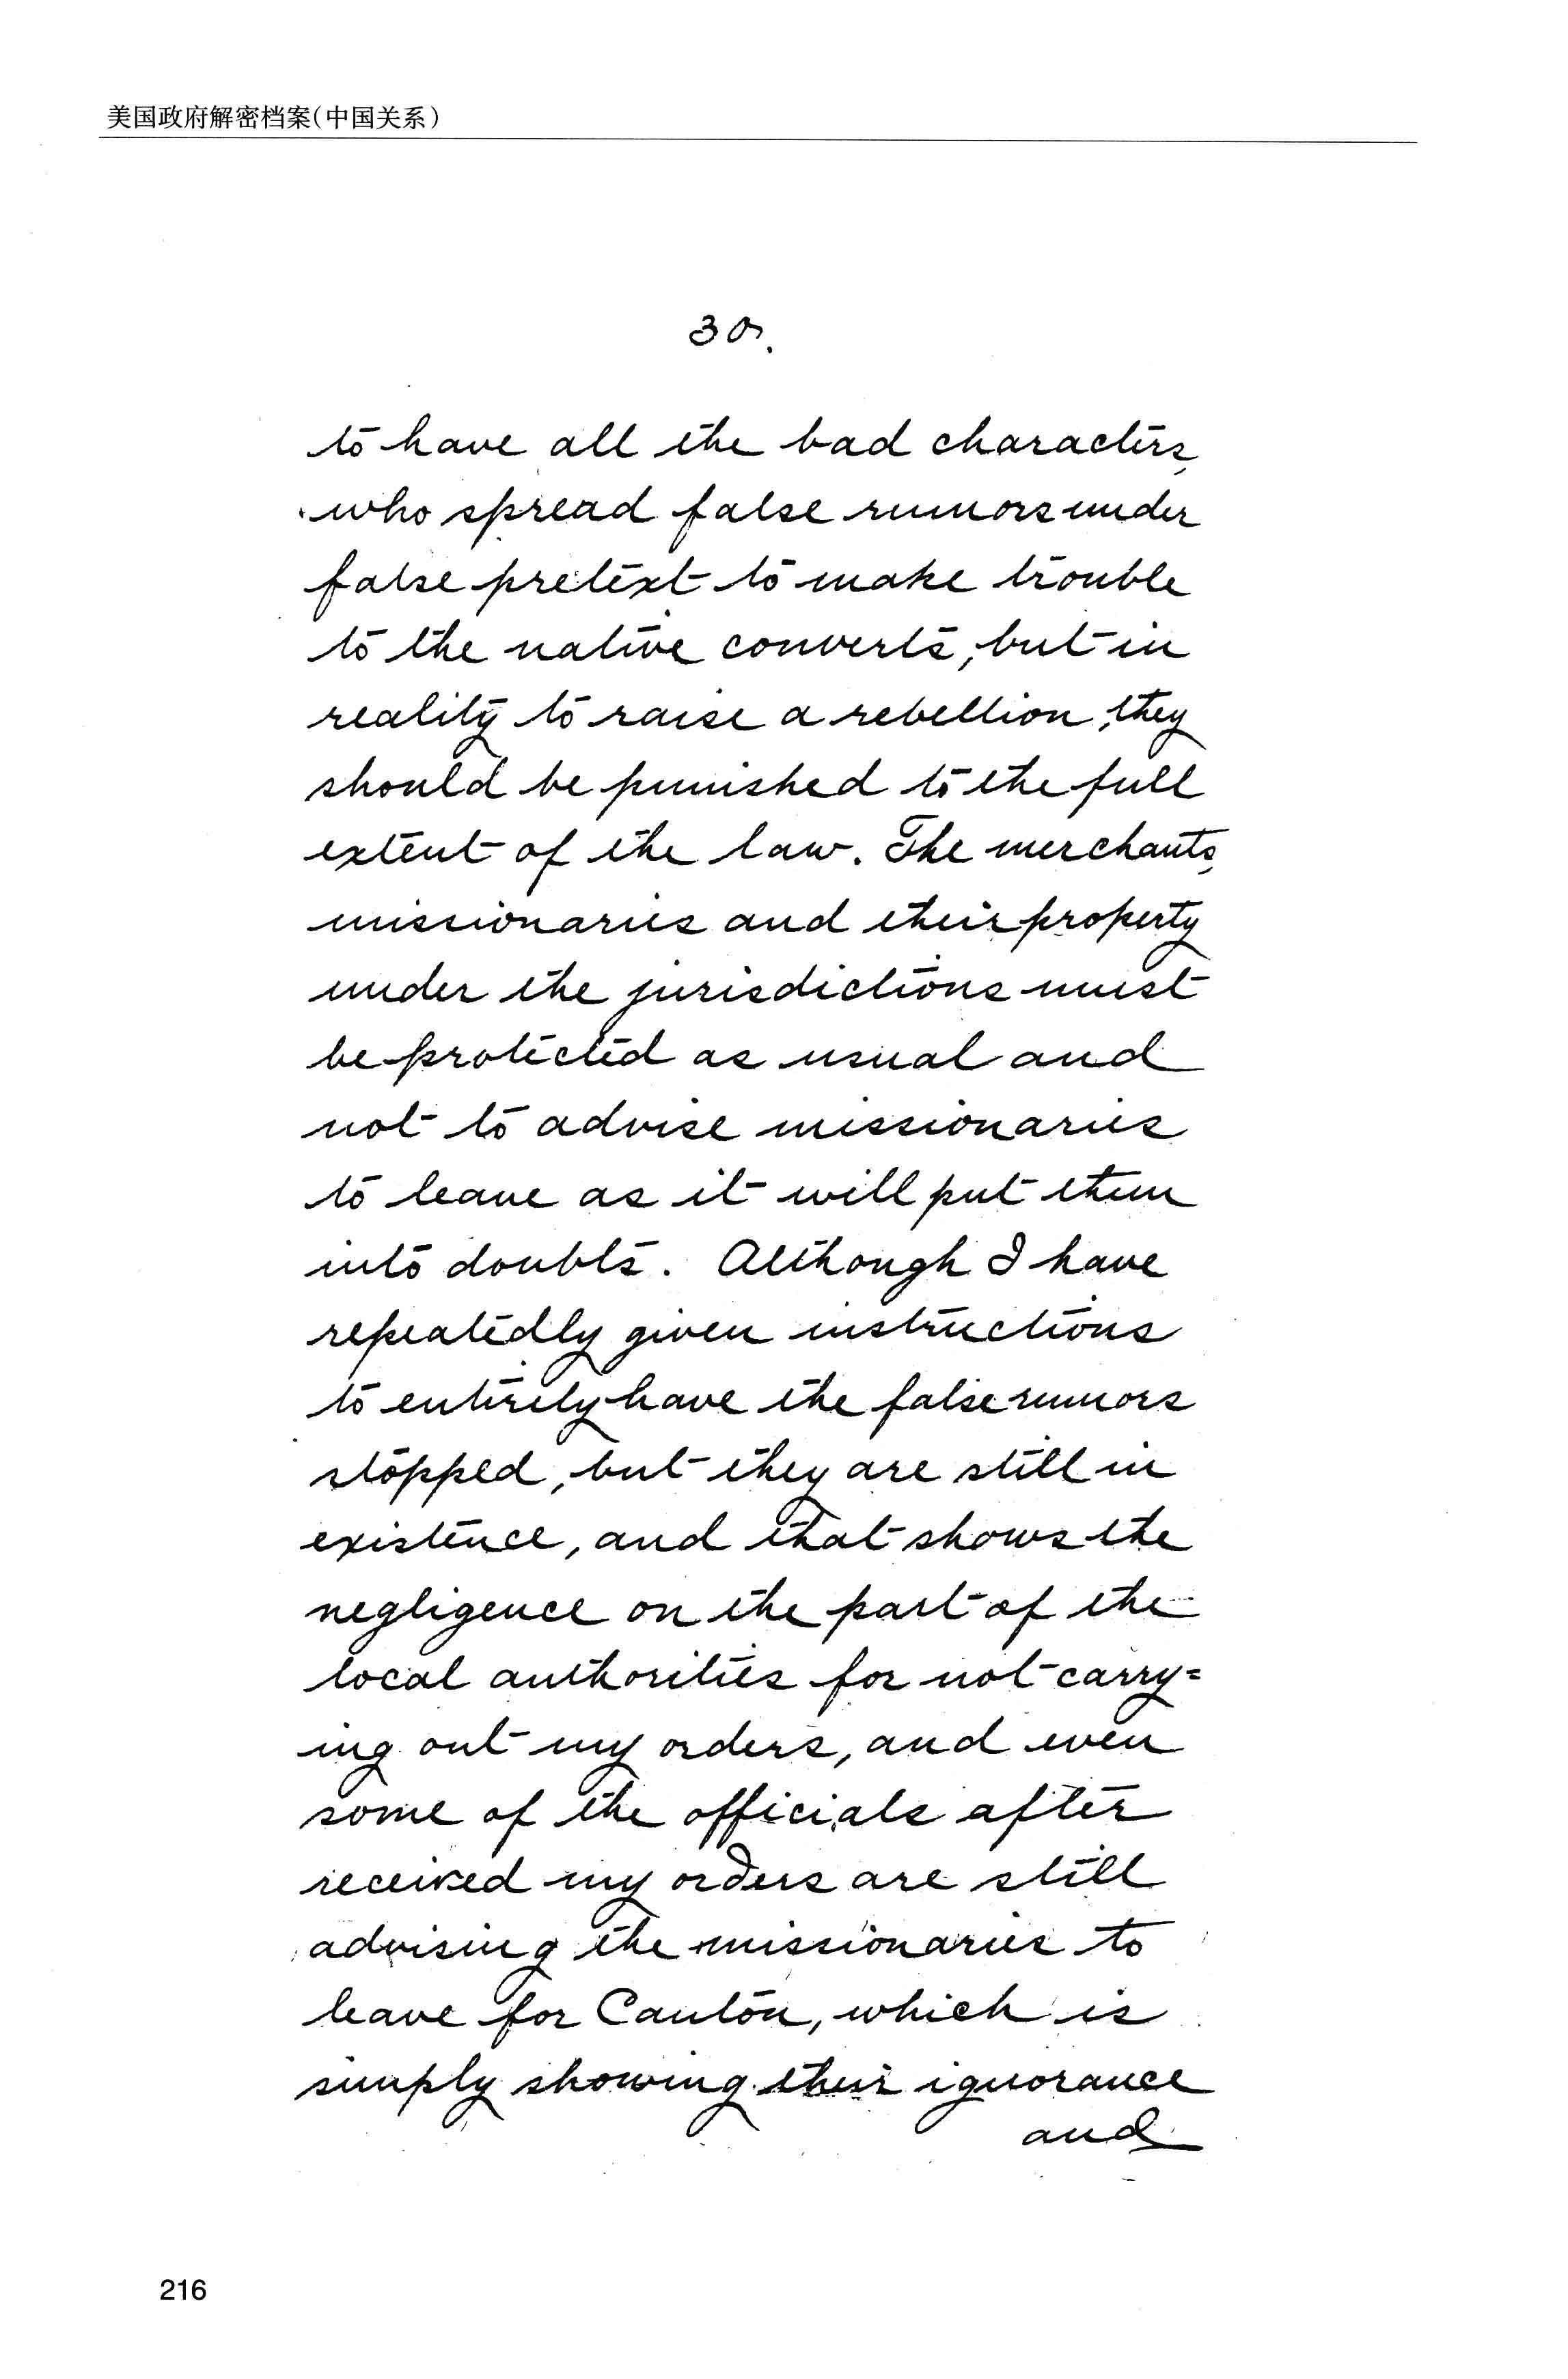 美国政府解密档案(中国关系)
30.
to have all the bad characters,
who spread false rumors under
false pretext to make trouble
to the native converts, but in
reality to raise a rebellion, they
should be punished to the full
extent of the law. The merchants,
missionaries and their property
under the jurisdictions must
be protected as usual and
not to advise missionaries
to leave as it will put them
into doubts. Although I have
repeatedly given instructions
to entirely have the false rumors
stopped, but they are still in
existence, and that shows the
negligence on the part of the
local authorities for not carry=
ing out my orders, and even
some of the officials after
received my orders are still
advising the missionaries to
leave for Canton, which is
simply showing their ignorance
and
216